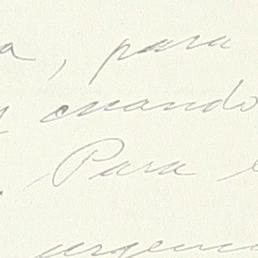 a, para
cuando
Para e
urgenc